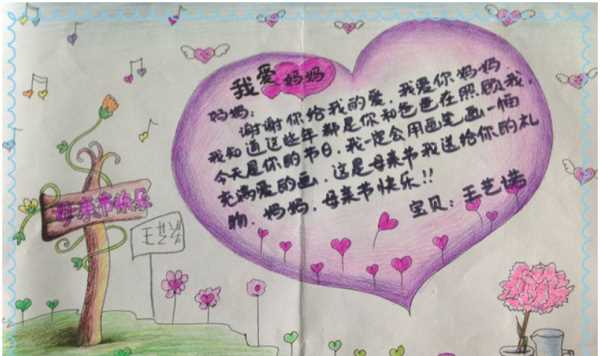 我爱妈妈
妈妈:
谢谢你给我的爱,我爱你妈妈
我知道这些年都是你和爸爸在照顾我,
今天是你的节日,我一定会用画笔画一幅
充满爱的画,这是母亲节我送给你的礼
物,妈妈,母亲节快乐!!
宝贝:王艺诺
母亲节快乐